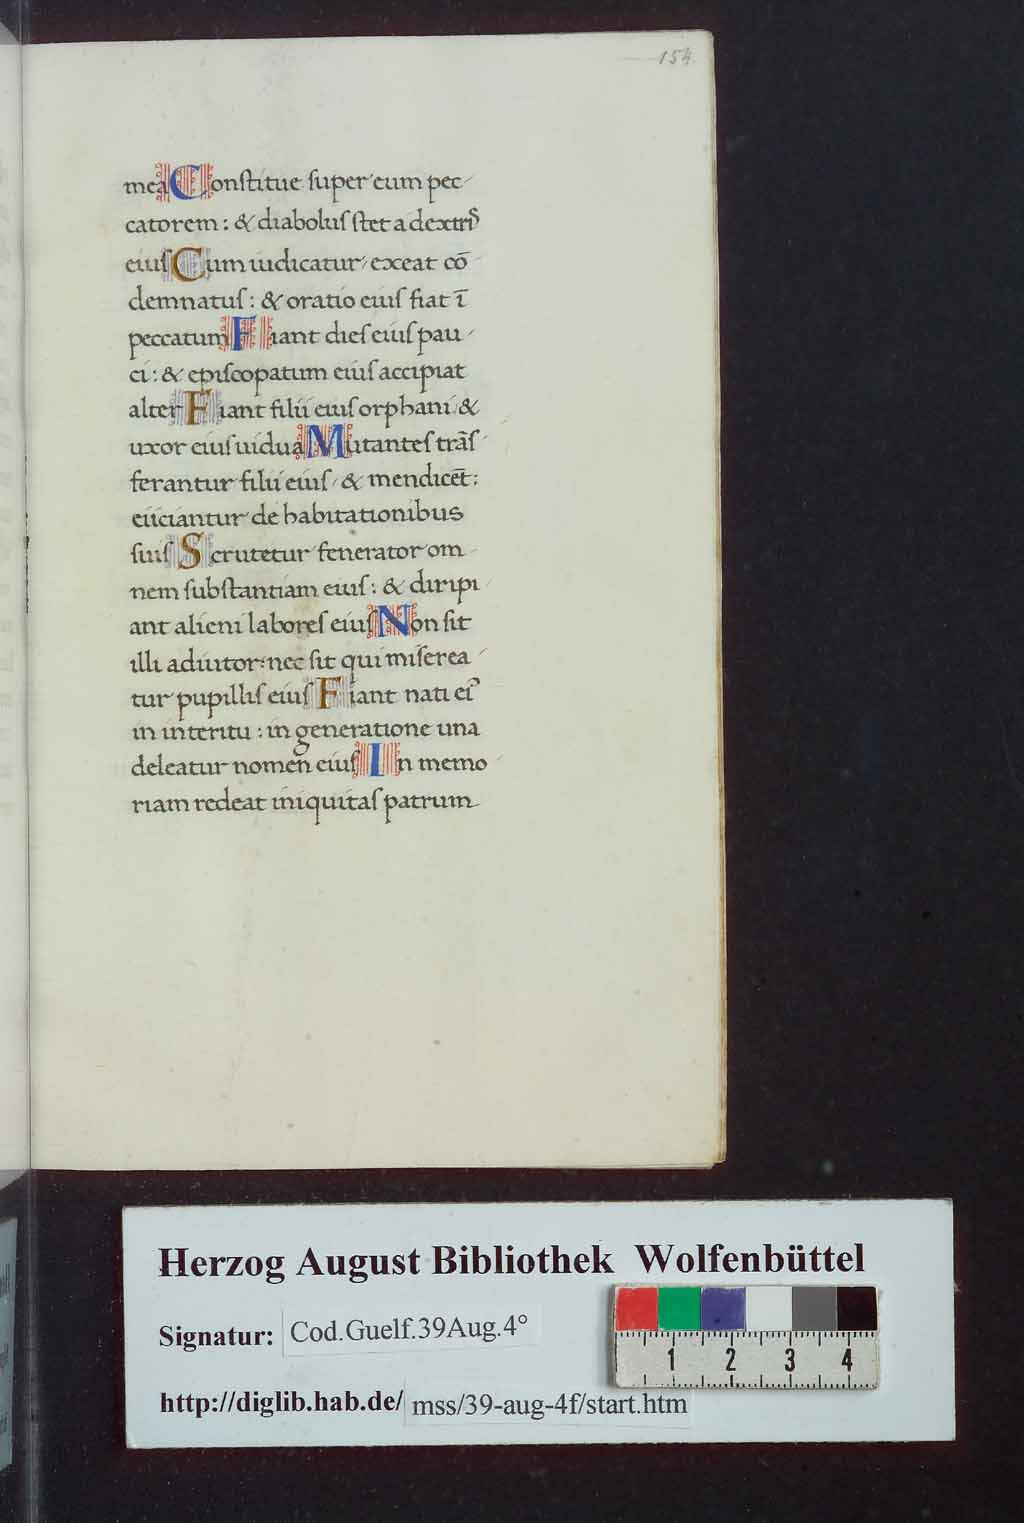 154
mea Conſtitue ſuper eum pec
catorem: & diaboluſ ſtet a dextrſ
eiuſ Cum iudicatur exeat cō
demnatuſ: & oratio eiuſ fiat ī
peccatum Fiant dieſ eiuſ pau
ci: & epiſcopatum eiuſ accipiat
alter Fiant filii eiuſ orphani & 
uxor eiuſ uidua Mutanteſ trāſ
ferantur filii eiuſ & mendicēt:
eiiciantur de habitationibus
ſuiſ Scrutetur fenerator om
nem ſubſtantiam eiuſ: & diripi
ant alieni laboreſ eiuſ Non ſit
illi adiutor: nec ſit qui miſerea
tur pupilliſ eiuſ Fiant nati eiꝰ
in interitu: in generatione una
deleatur nomen eiuſ In memo
riam redeat iniquitaſ patrum
Herzog August Bibliothek Wolfenbüttel
Signatur: Cod.Guelf.39Aug.4°
1 2 3 4
http://diglib.hab.de/ mss/39-aug-4f/start.htm